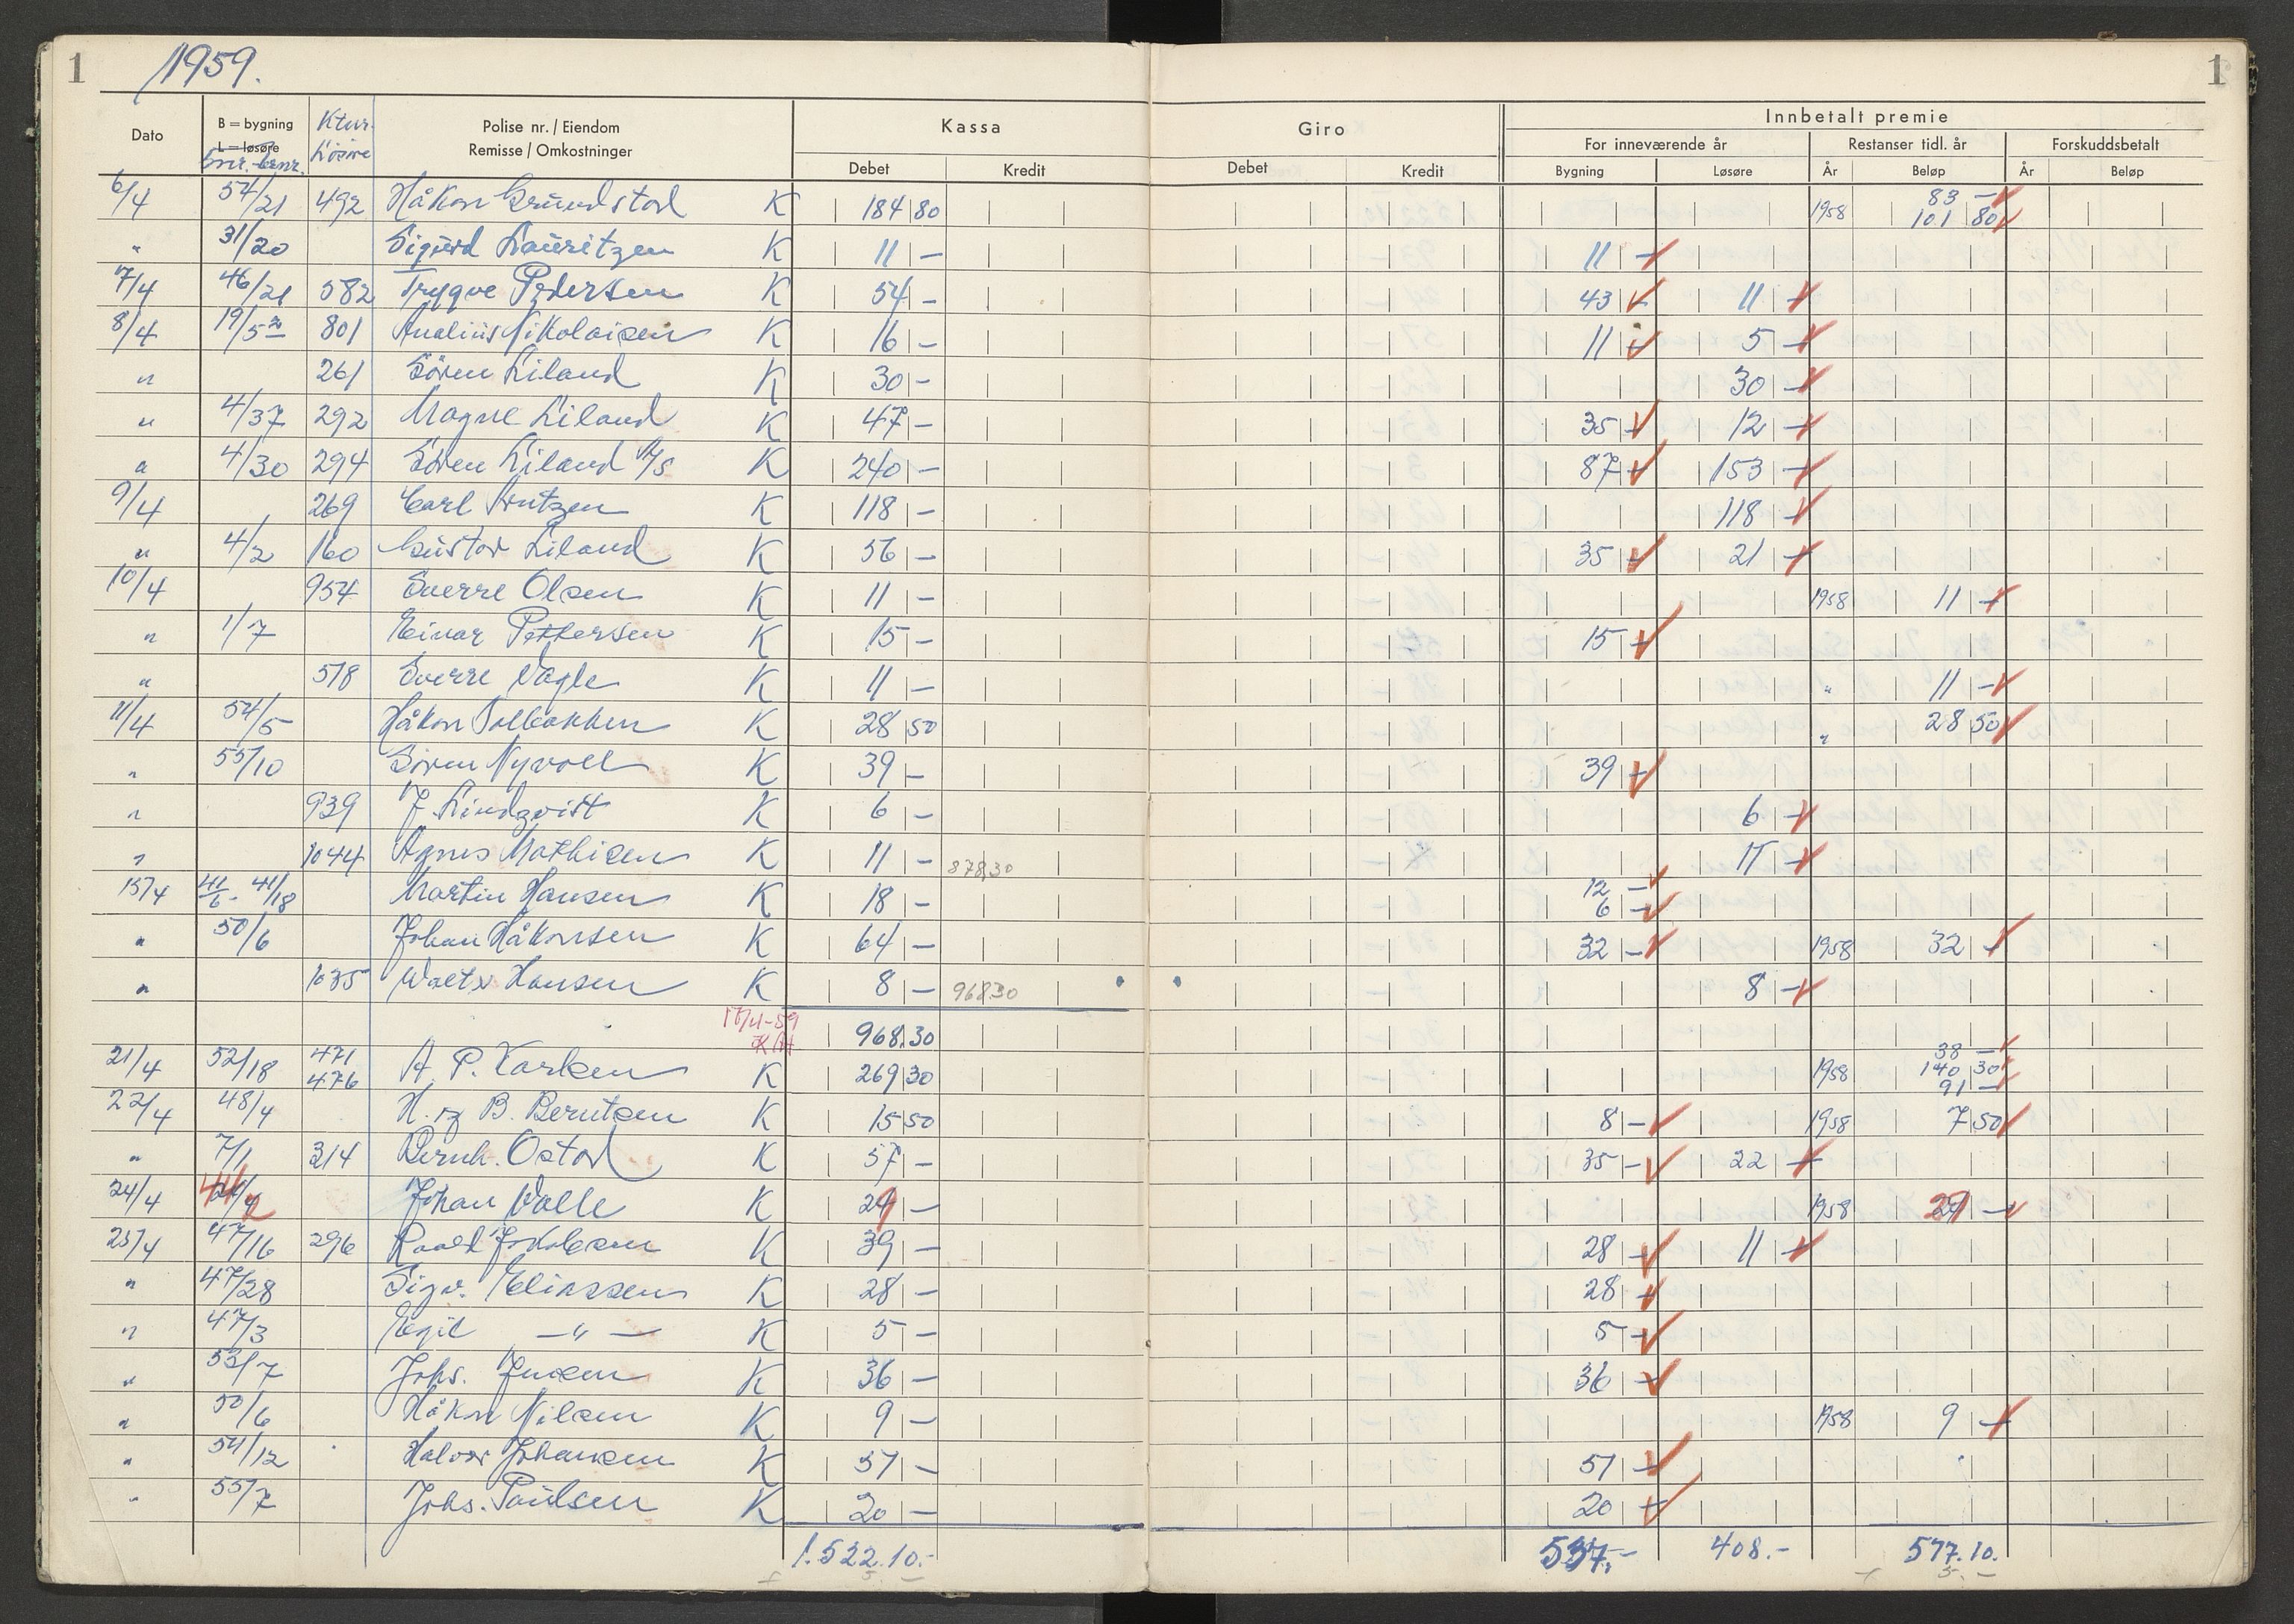 1 1959. 1
Dato B = bygning Ktur. Polise nr. / Eiendom Kassa Giro Innbetalt premie
L = løsøre Løsøre Remisse / Omkostninger For inneværende år Restanser tidl. år Forskuddsbetalt
Gnr. Bnr. Debet Kredit Debet Kredit Bygning Løsøre År Beløp År Beløp
83 —
6/4 54/21 492 Håkon Grundstad K 184 80 1958 101 80
" 31/20 Sigurd Lauritzen K 11 — 11 —
7/4 46/21 582 Trygve Pedersen K 54 — 43 — 11 —
8/4 19/52 801 Analius Nikolaisen K 16 — 11 — 5 —
" 261 Sören Liland K 30 — 30 —
" 4/37 292 Magne Liland K 47 — 35 — 12 —
" 4/30 294 Sören Liland A/S K 240 — 87 — 153 —
9/4 269 Carl Arntzen K 118 — 118 —
" 4/2 160 Gustav Liland K 56 — 35 — 21 —
10/4 954 Sverre Olsen K 11 — 1958 11 —
" 1/7 Einar Pettersen K 15 — 15 —
" 578 Sverre Vagle K 11 — " 11 —
11/4 54/5 Håkon Solbakken K 28 50 " 28 50
" 55/10 Sören Nyvoll K 39 — 39 —
" 939 J. Lindqvist K 6 — 6 —
" 1044 Agnes Mathisen K 11 — 878,30 11 —
15/4 41/6 - 41/18 Martin Hansen K 18 — 12 —
6 —
" 50/6 Johan Håkonsen K 64 — 32 — 1958 32 —
" 1035 Walter Hansen K 8 — 968 30 8 —
17/4-59
968.30
38 —
21/4 52/18 471 A. P. Karlsen K 269 30 1958 140 30
476 91 —
22/4 48/4 H. og B. Berntsen K 15 50 8 — 1958 7 50
" 7/1 314 Bernh. Ostad K 57 — 35 — 22 —
24/4 Johan Valle K 29 — 1958 29 —
25/4 47/16 296 Roald Jakobsen K 39 — 28 — 11 —
" 47/28 Sigv. Eliassen K 28 — 28 —
" 47/3 Egil — " — K 5 — 5 —
" 53/7 Johs. Jensen K 36 — 36 —
" 50/6 Håkon Nilsen K 9 — 1958 9 —
" 54/12 Halvor Johansen K 51 — 51 —
" 55/7 Johs. Paulsen K 20 — 20 —
1.522.10.- 537.- 408.- 577.10.